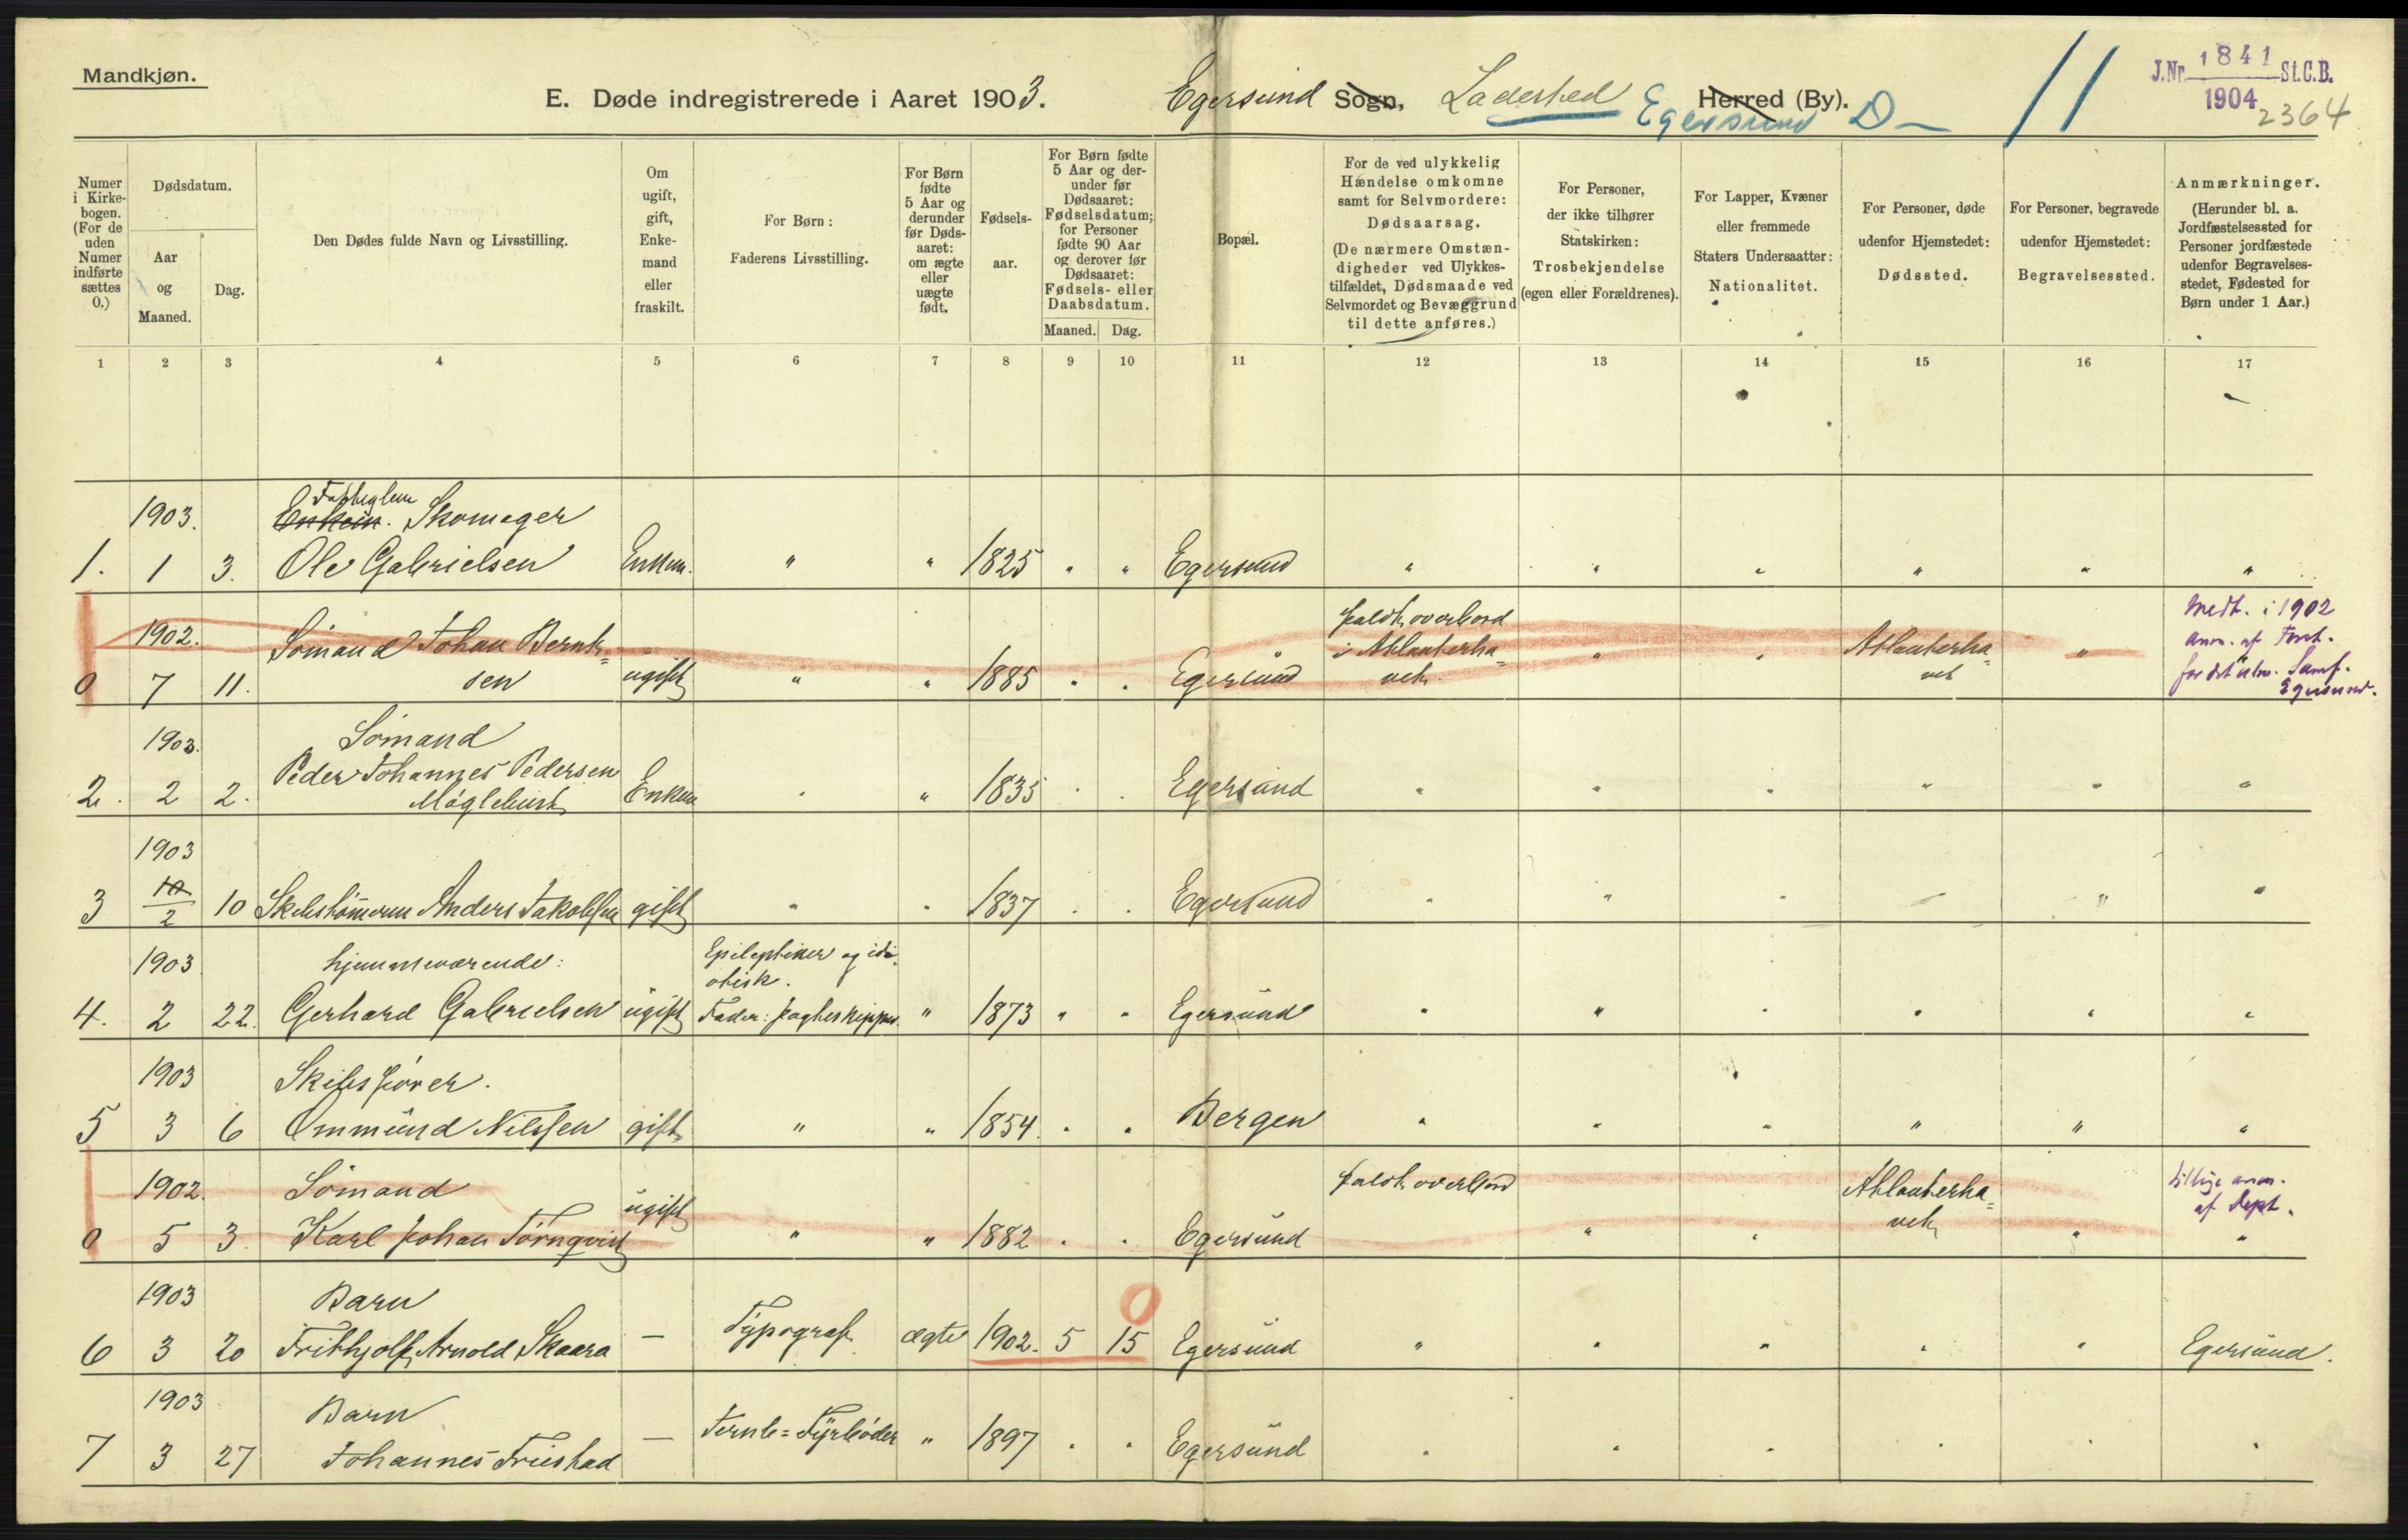 Mandkjøn.
E. Døde indregistrerede i Aaret 1903.
Egersund Sogn, Ladested Herred (By).
Egersund D — 11
J.Nr. 1841 St.C.B.
1904
2364
Numer i Kirke-bogen. (For de uden Numer indførte sættes 0.)
Dødsdatum.
Aar og Maaned.
Dag.
Den Dødes fulde Navn og Livsstilling.
Om ugift, gift, Enke-mand eller fraskilt.
For Børn: Faderens Livsstilling.
For Børn fødte 5 Aar og derunder før Døds-aaret: om ægte eller uægte født.
Fødsels-aar.
For Børn fødte 5 Aar og der-under før Dødsaaret: Fødselsdatum; for Personer fødte 90 Aar og derover før Dødsaaret: Fødsels- eller Daabsdatum.
Maaned. Dag.
Bopæl.
For de ved ulykkelig Hændelse omkomne samt for Selvmordere: Dødsaarsag. (De nærmere Omstæn-digheder ved Ulykkes-tilfældet, Dødsmaade ved Selvmordet og Bevæggrund til dette anføres.)
For Personer, der ikke tilhører Statskirken: Trosbekjendelse (egen eller Forældrenes).
For Lapper, Kvæner eller fremmede Staters Undersaatter: Nationalitet.
For Personer, døde udenfor Hjemstedet: Dødssted.
For Personer, begravede udenfor Hjemstedet: Begravelsessted.
Anmærkninger. (Herunder bl. a. Jordfæstelsessted for Personer jordfæstede udenfor Begravelses-stedet, Fødested for Børn under 1 Aar.)
1 2 3 4 5 6 7 8 9 10 11 12 13 14 15 16 17
1903. Enkem. Skomager
1. 1 3. Ole Gabrielsen Enkem. " " 1825 " " Egersund " " " " " "
1902. Sømand Johan Bernt= faldt overbord i Atlanterha= Atlanterha= Medt. i 1902
0 7 11. sen ugift " " 1885 " " Egersund vet. " " vet "
Egersund.
1903. Sømand
Peder Johannes Pedersen
2. 2 2. Møglebust Enkem " " 1835 " " Egersund " " " " " "
1903
3 10 2 10 Skibstømerm Anders Jakobsen gift " " 1837 " " Egersund " " " " " "
1903 hjemmeværende: Epileptiker og idi=
otisk.
4. 2 22. Gerhard Gabrielsen ugift Fader: Jagteskipper. " 1873 " " Egersund " " " " " "
1903 Skibsfører.
5 3 6 Ommund Nilssen gift " " 1854. " " Bergen " " " " " "
1902. Sømand ugift faldt overbord Atlanterha= tillige anm.
vet af Dept.
0 5 3. Karl Johan Törnqvist " " 1882 " " Egersund " " " "
1903 Barn
6 3 20 Frithjolf Arnold Skaara — Typograf ægte 1902. 5 15 0 Egersund " " " " " Egersund.
1903 Barn
7 3 27 Johannes Friestad — Jernb=Fyrbøder " 1897 " " Egersund " " " " " "